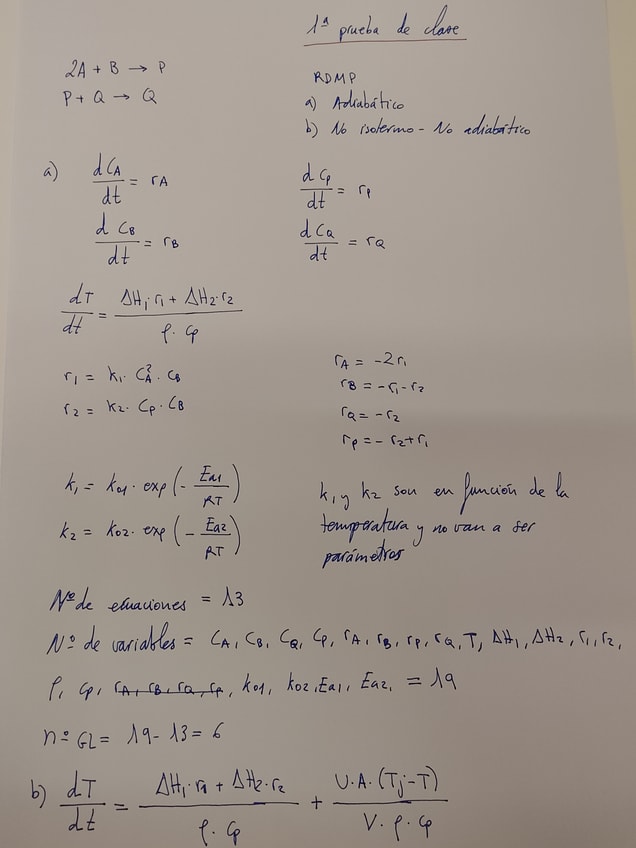 1ª prueba de clase
2A + B → P
P + Q → Q
RDMP
a) Adiabático
b) No isotermo - No adiabático
a) dCA/dt = rA
dCp/dt = rp
dCB/dt = rB
dCQ/dt = rQ
dT/dt = ΔH1·r1 + ΔH2·r2 / ρ·cp
r1 = k1·CA²·CB
r2 = k2·Cp·CB
rA = -2r1
rB = -r1-r2
rQ = -r2
rp = -r2+r1
k1 = k01·exp(-Ea1/RT)
k2 = k02·exp(-Ea2/RT)
k1 y k2 son en función de la
temperatura y no van a ser
parámetros
Nº de ecuaciones = 13
Nº de variables = CA, CB, CQ, Cp, rA, rB, rp, rQ, T, ΔH1, ΔH2, r1, r2,
ρ, cp, rA, rB, rQ, rp, k01, k02, Ea1, Ea2, = 19
nº GL = 19-13 = 6
b) dT/dt = ΔH1·r1 + ΔH2·r2 / ρ·cp + U·A·(Tj-T) / V·ρ·cp